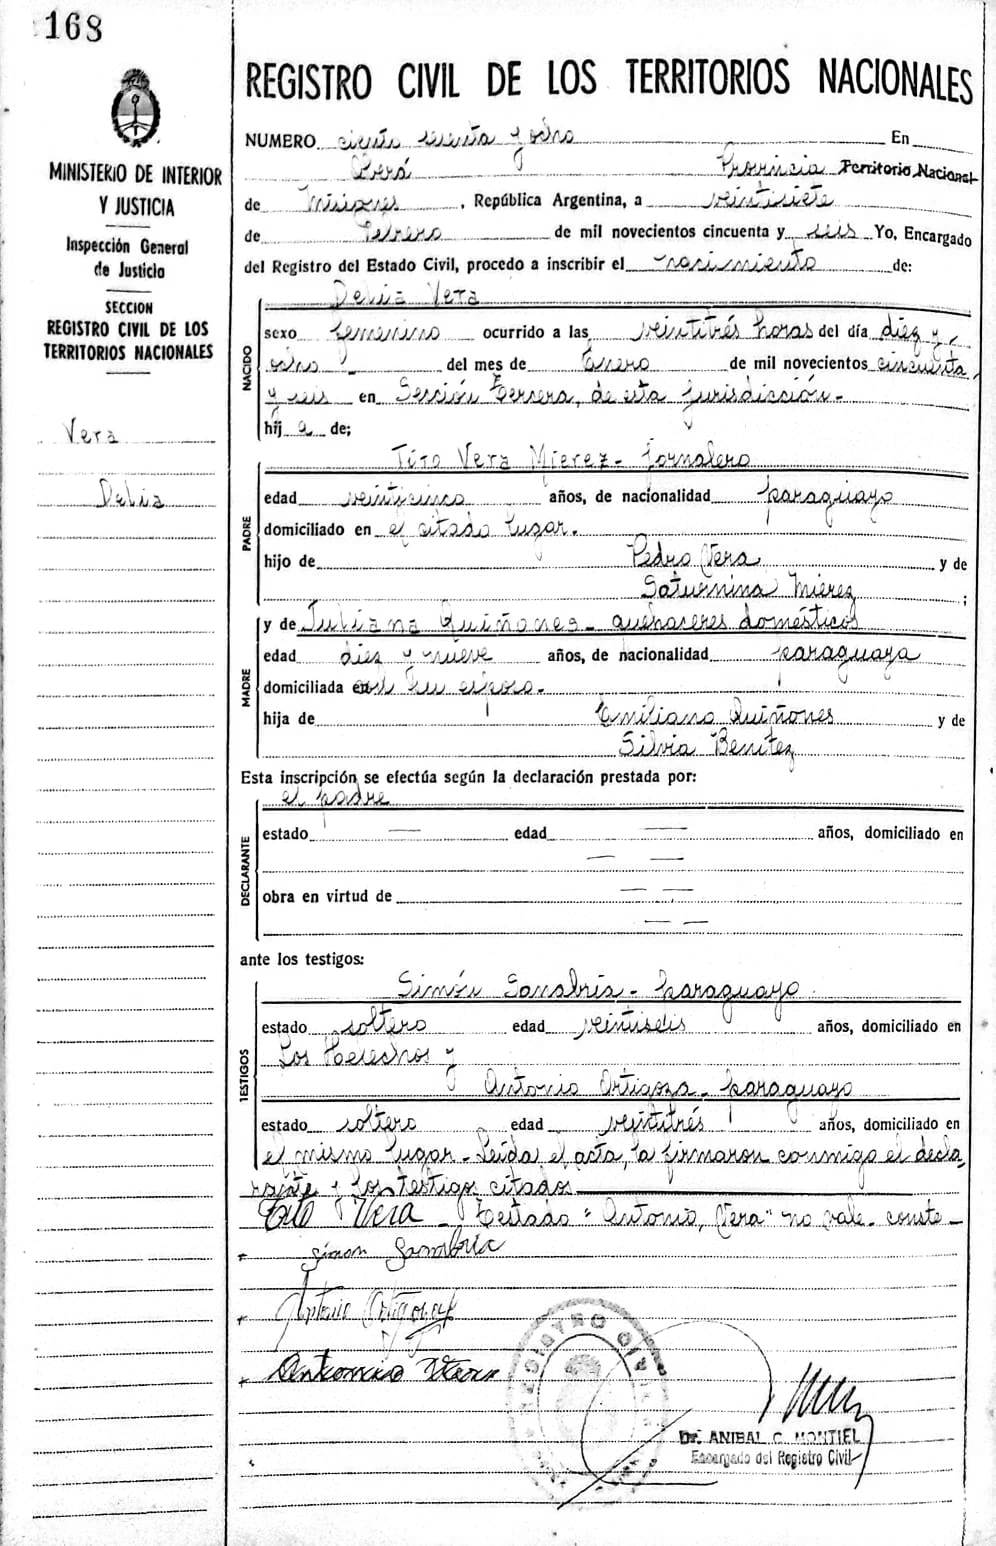 168
MINISTERIO DE INTERIOR
Y JUSTICIA
Inspección General
de Justicia
SECCION
REGISTRO CIVIL DE LOS
TERRITORIOS NACIONALES
Vera
Delia
REGISTRO CIVIL DE LOS TERRITORIOS NACIONALES
NUMERO ciento sesenta y ocho En
Oberá Provincia Territorio Nacional
de Misiones, República Argentina, a veintisiete
de Febrero de mil novecientos cincuenta y seis Yo, Encargado
del Registro del Estado Civil, procedo a inscribir el nacimiento de:
NACIDO
Delia Vera
sexo femenino ocurrido a las veintitrés horas del día diez y
ocho del mes de Enero de mil novecientos cincuenta
y seis en Sección Tercera, de esta jurisdicción.-
hij a de;
PADRE
Tito Vera Mierez- Jornalero
edad veinticinco años, de nacionalidad paraguayo
domiciliado en el citado lugar.
hijo de Pedro Vera y de
Saturnina Mierez ;
MADRE
y de Juliana Quiñones- quehaceres domésticos
edad diez y nueve años, de nacionalidad paraguaya
domiciliada con su esposo.
hija de Emiliano Quiñones y de
Silvia Benitez
Esta inscripción se efectúa según la declaración prestada por:
DECLARANTE
el padre
estado — edad — años, domiciliado en
— —
obra en virtud de — —
— —
ante los testigos:
TESTIGOS
Simón Sanabria- paraguayo
estado soltero edad veintiseis años, domiciliado en
Los Helechos y
Antonio Ortigoza- paraguayo
estado soltero edad veintitrés años, domiciliado en
el mismo lugar- Leída el acta, la firmaron conmigo el decla-
rante y los testigos citados
Tito Vera - Testado "Antonio, Vera" no vale- conste-
Simon Sanabria
Antonio Ortigoza
Antonio Vera
REGISTRO CIVIL
Dr. ANIBAL C. MONTIEL
Encargado del Registro Civil